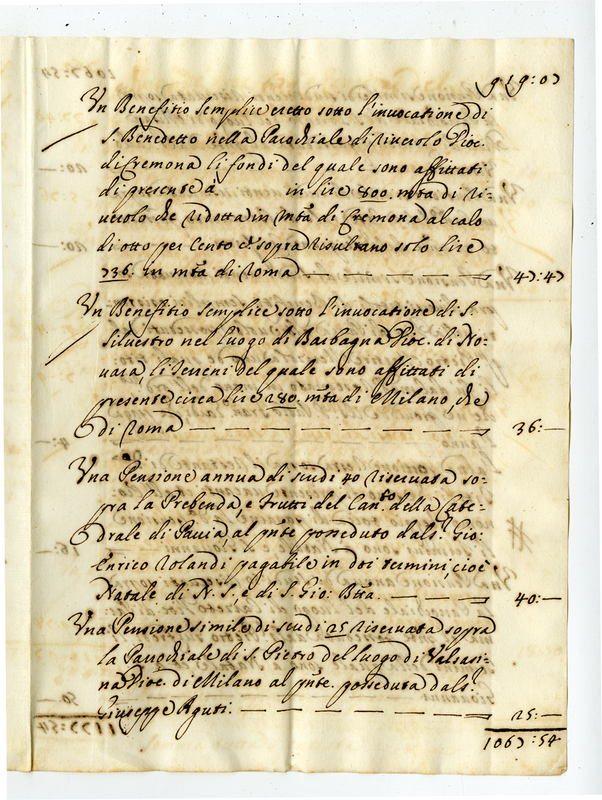 919:07
Un Benefitio semplice eretto sotto l'invocatione di
S. Benedetto nella Parochiale di Riverolo Dioc.
di Cremona li fondi del quale sono affittati
di presente à in lire 800. mta di Ri=
verolo che ridotta in mta di Cremona al calo
di otto per cento c.e sopra risultano solo lire
736. in mta di Roma 47:47
Un Benefitio semplice sotto l'invocatione di S.
Silvestro nel luogo di Barbagna Dioc. di No=
vara, li terreni del quale sono affittati di
presente circa lire 280. mta di Milano, che
di Roma 36:—
Una Pensione annua di scudi 40 riservata so=
pra la Prebenda, e frutti del Can.to della Cate=
drale di Pavia, al pnte posseduto dal s.r Gio:
Enrico Rolandi pagabile in doi termini, cioè
Natale di N. S., e di S. Gio: Btta. 40:—
Una Pensione simile di scudi 25 riservata sopra
la Parochiale di S. Pietro del luogo di Valsasi=
na Dioc. di Milano al pnte. posseduta dal s.r
Giuseppe Aguti. 25:—
1067:54